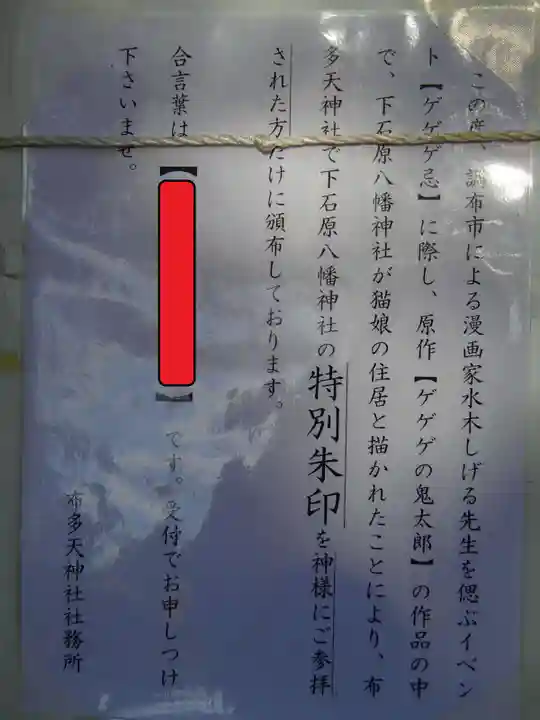 この度、調布市による漫画家水木しげる先生を偲ぶイベン
ト【ゲゲゲ忌】に際し、原作【ゲゲゲの鬼太郎】の作品の中
で、下石原八幡神社が猫娘の住居と描かれたことにより、布
多天神社で下石原八幡神社の特別朱印を神様にご参拝
された方だけに頒布しております。
合言葉は【】です。受付でお申しつけ
下さいませ。
布多天神社社務所